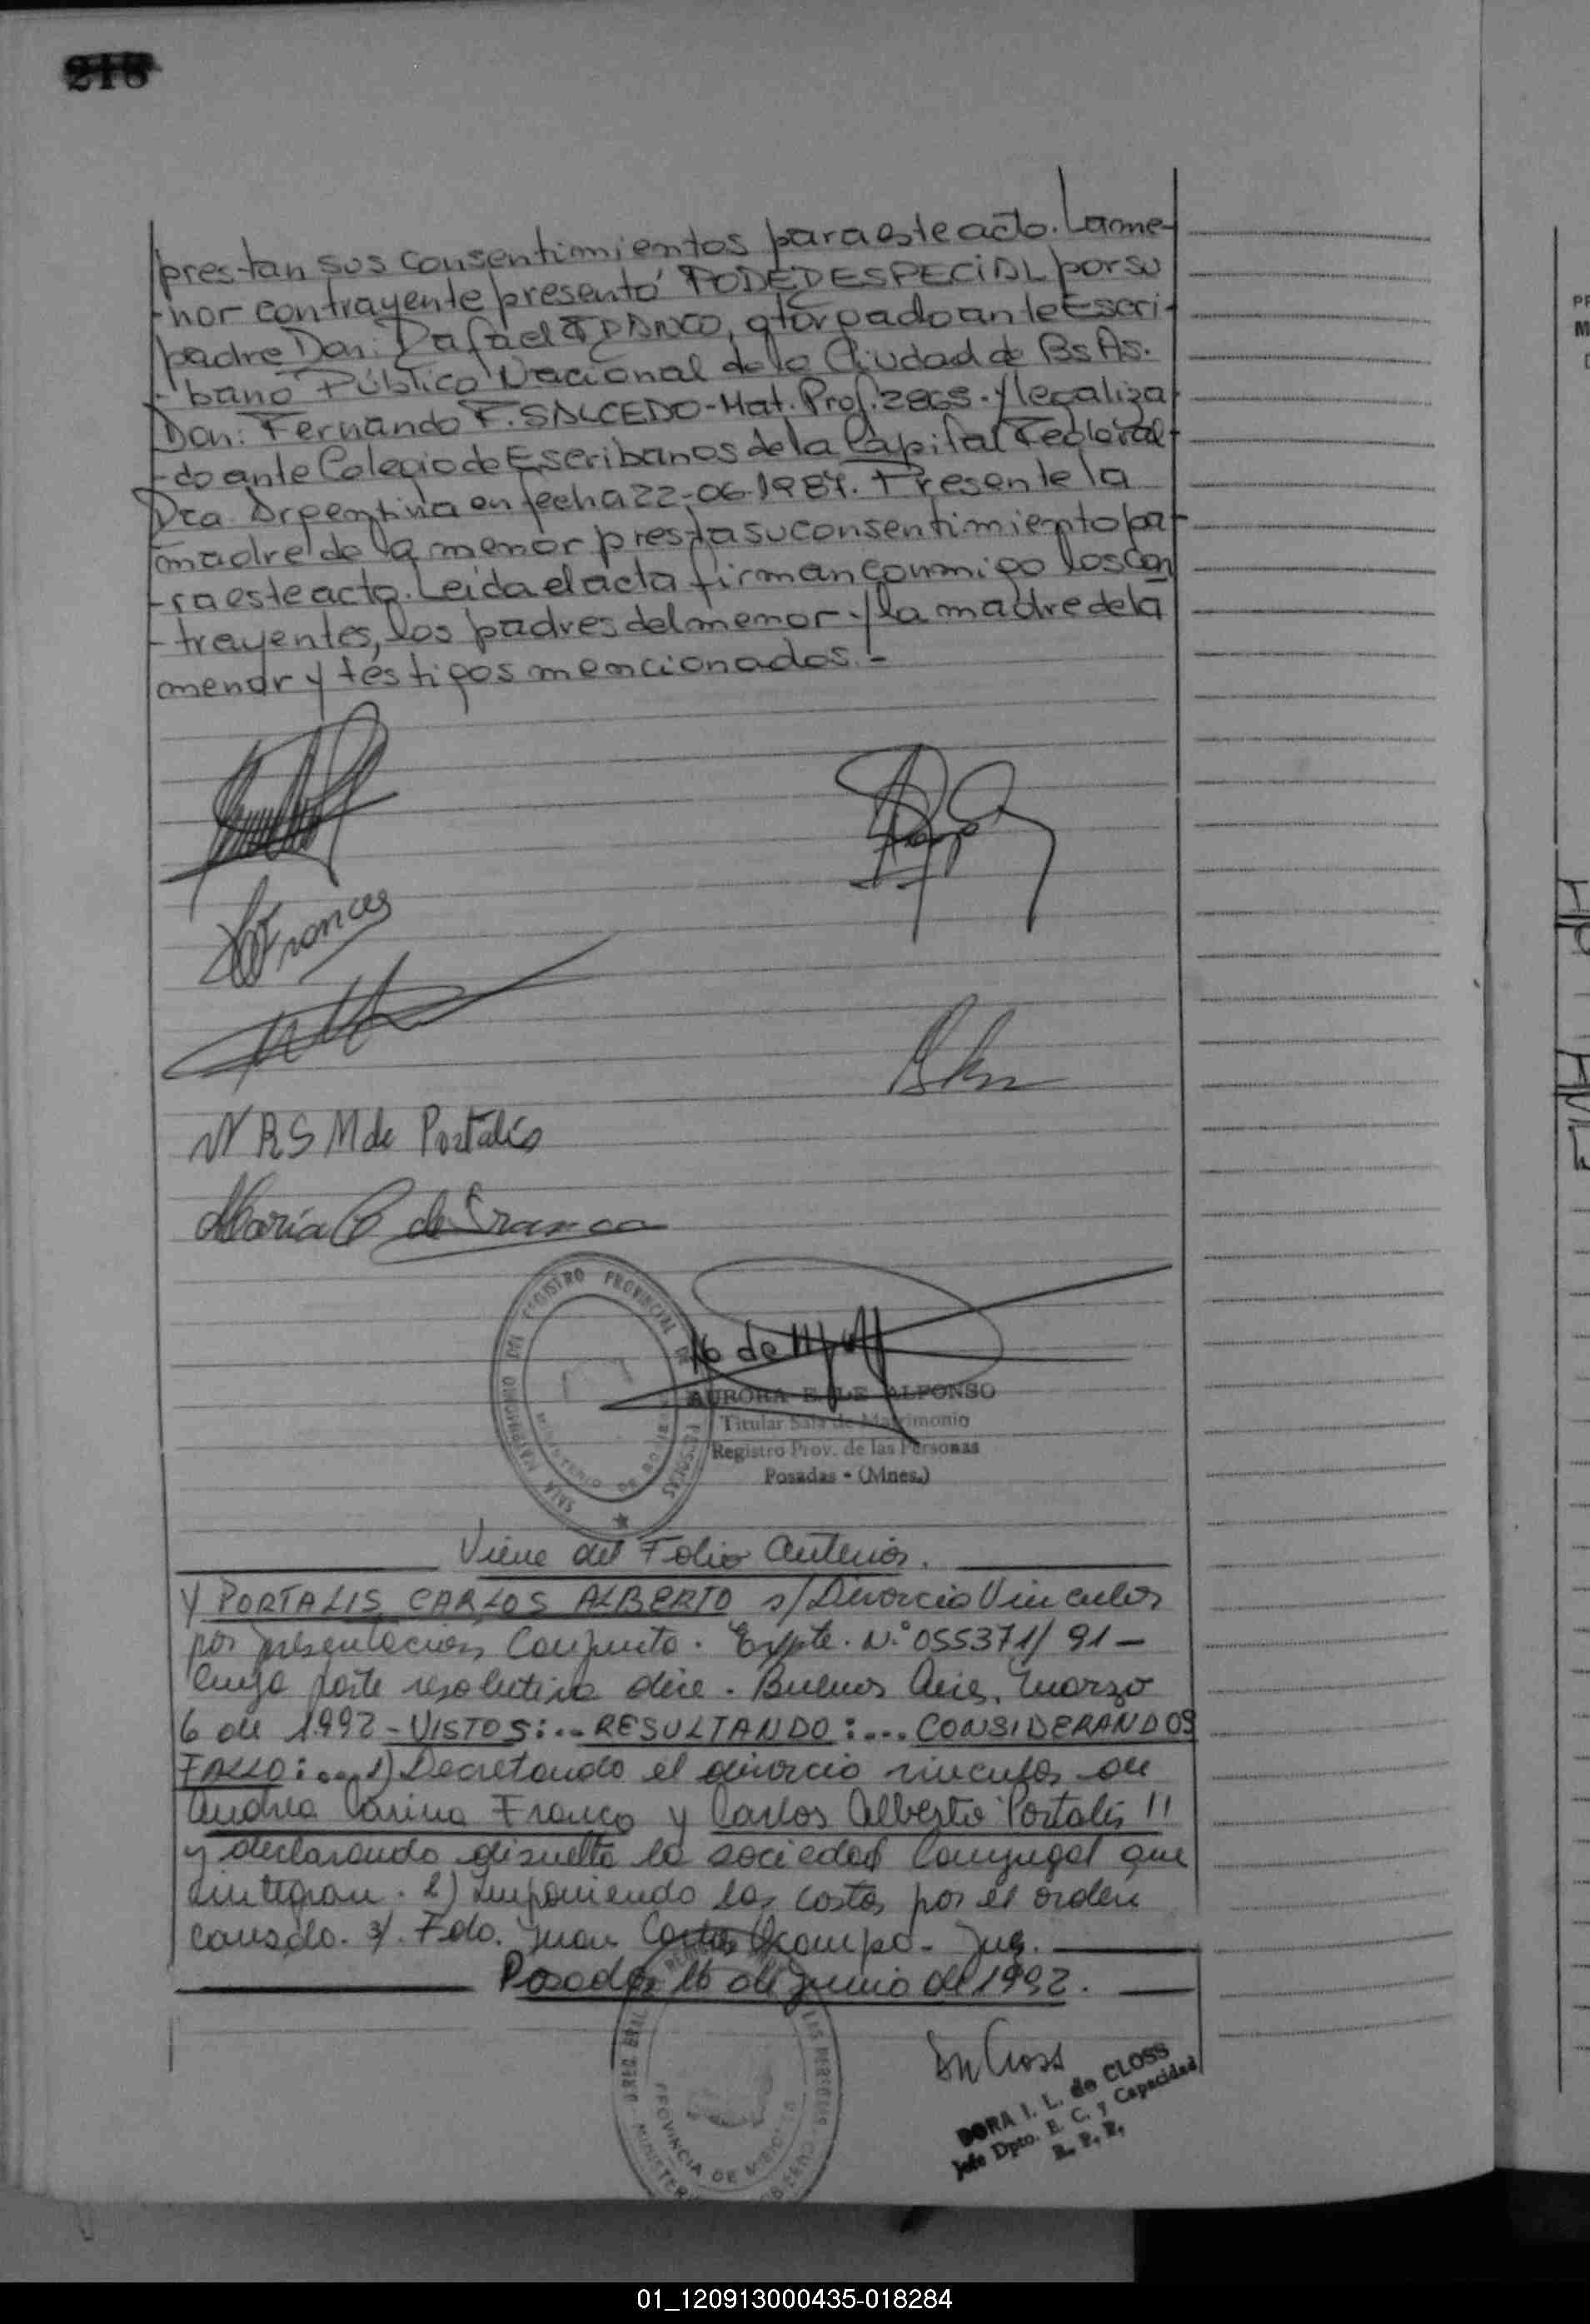 218
prestan sus consentimientos para este acto. La me-
-nor contrayente presentó PODED ESPECIAL por su
padre Don: Rafael FRANCO, otorgado ante Escri-
-bano Público Nacional de la Ciudad de Bs As.
Don: Fernando F. SALCEDO - Mat. Prof. 2865. y legaliza-
-do ante Colegio de Escribanos de la Capital Federal-
Rca. Argentina en fecha 22-06-1987. Presente la
madre de la menor presta su consentimiento pa-
-ra este acto. Leída el acta firman conmigo los con
-trayentes, los padres del menor y la madre de la
menor y testigos mencionados.-
Franco
N R S M de Portalis
María C de Franco
SALA MATRIMONIO DEL REGISTRO PROVINCIAL DE PERSONAS
MINISTERIO DE GOBIERNO
AURORA E. DE ALFONSO
Titular Sala de Matrimonio
Registro Prov. de las Personas
Posadas - (Mnes.)
Viene del Folio Anterior.
Y PORTALIS CARLOS ALBERTO s/ Divorcio Vincular
por presentación Conjunta. Expte. N.° 055371/91 -
Cuya parte resolutiva dice. Buenos Aires, Marzo
6 de 1992 - VISTOS:.. RESULTANDO:... CONSIDERANDOS
FALLO:... 1) Decretando el divorcio vincular de
Andrea Carina Franco y Carlos Alberto Portalis !!
y declarando disuelta la sociedad Conyugal que
integran. 2) Imponiendo las costas por el orden
causado. 3/. Fdo. Juan Carlos Ocampo - Juez.
Posadas 16 de Junio de 1992.
PROVINCIA DE MISIONES
DORA I. L. de CLOSS
Jefe Dpto. E. C. y Capacidad
R. P. P.
01_120913000435-018284